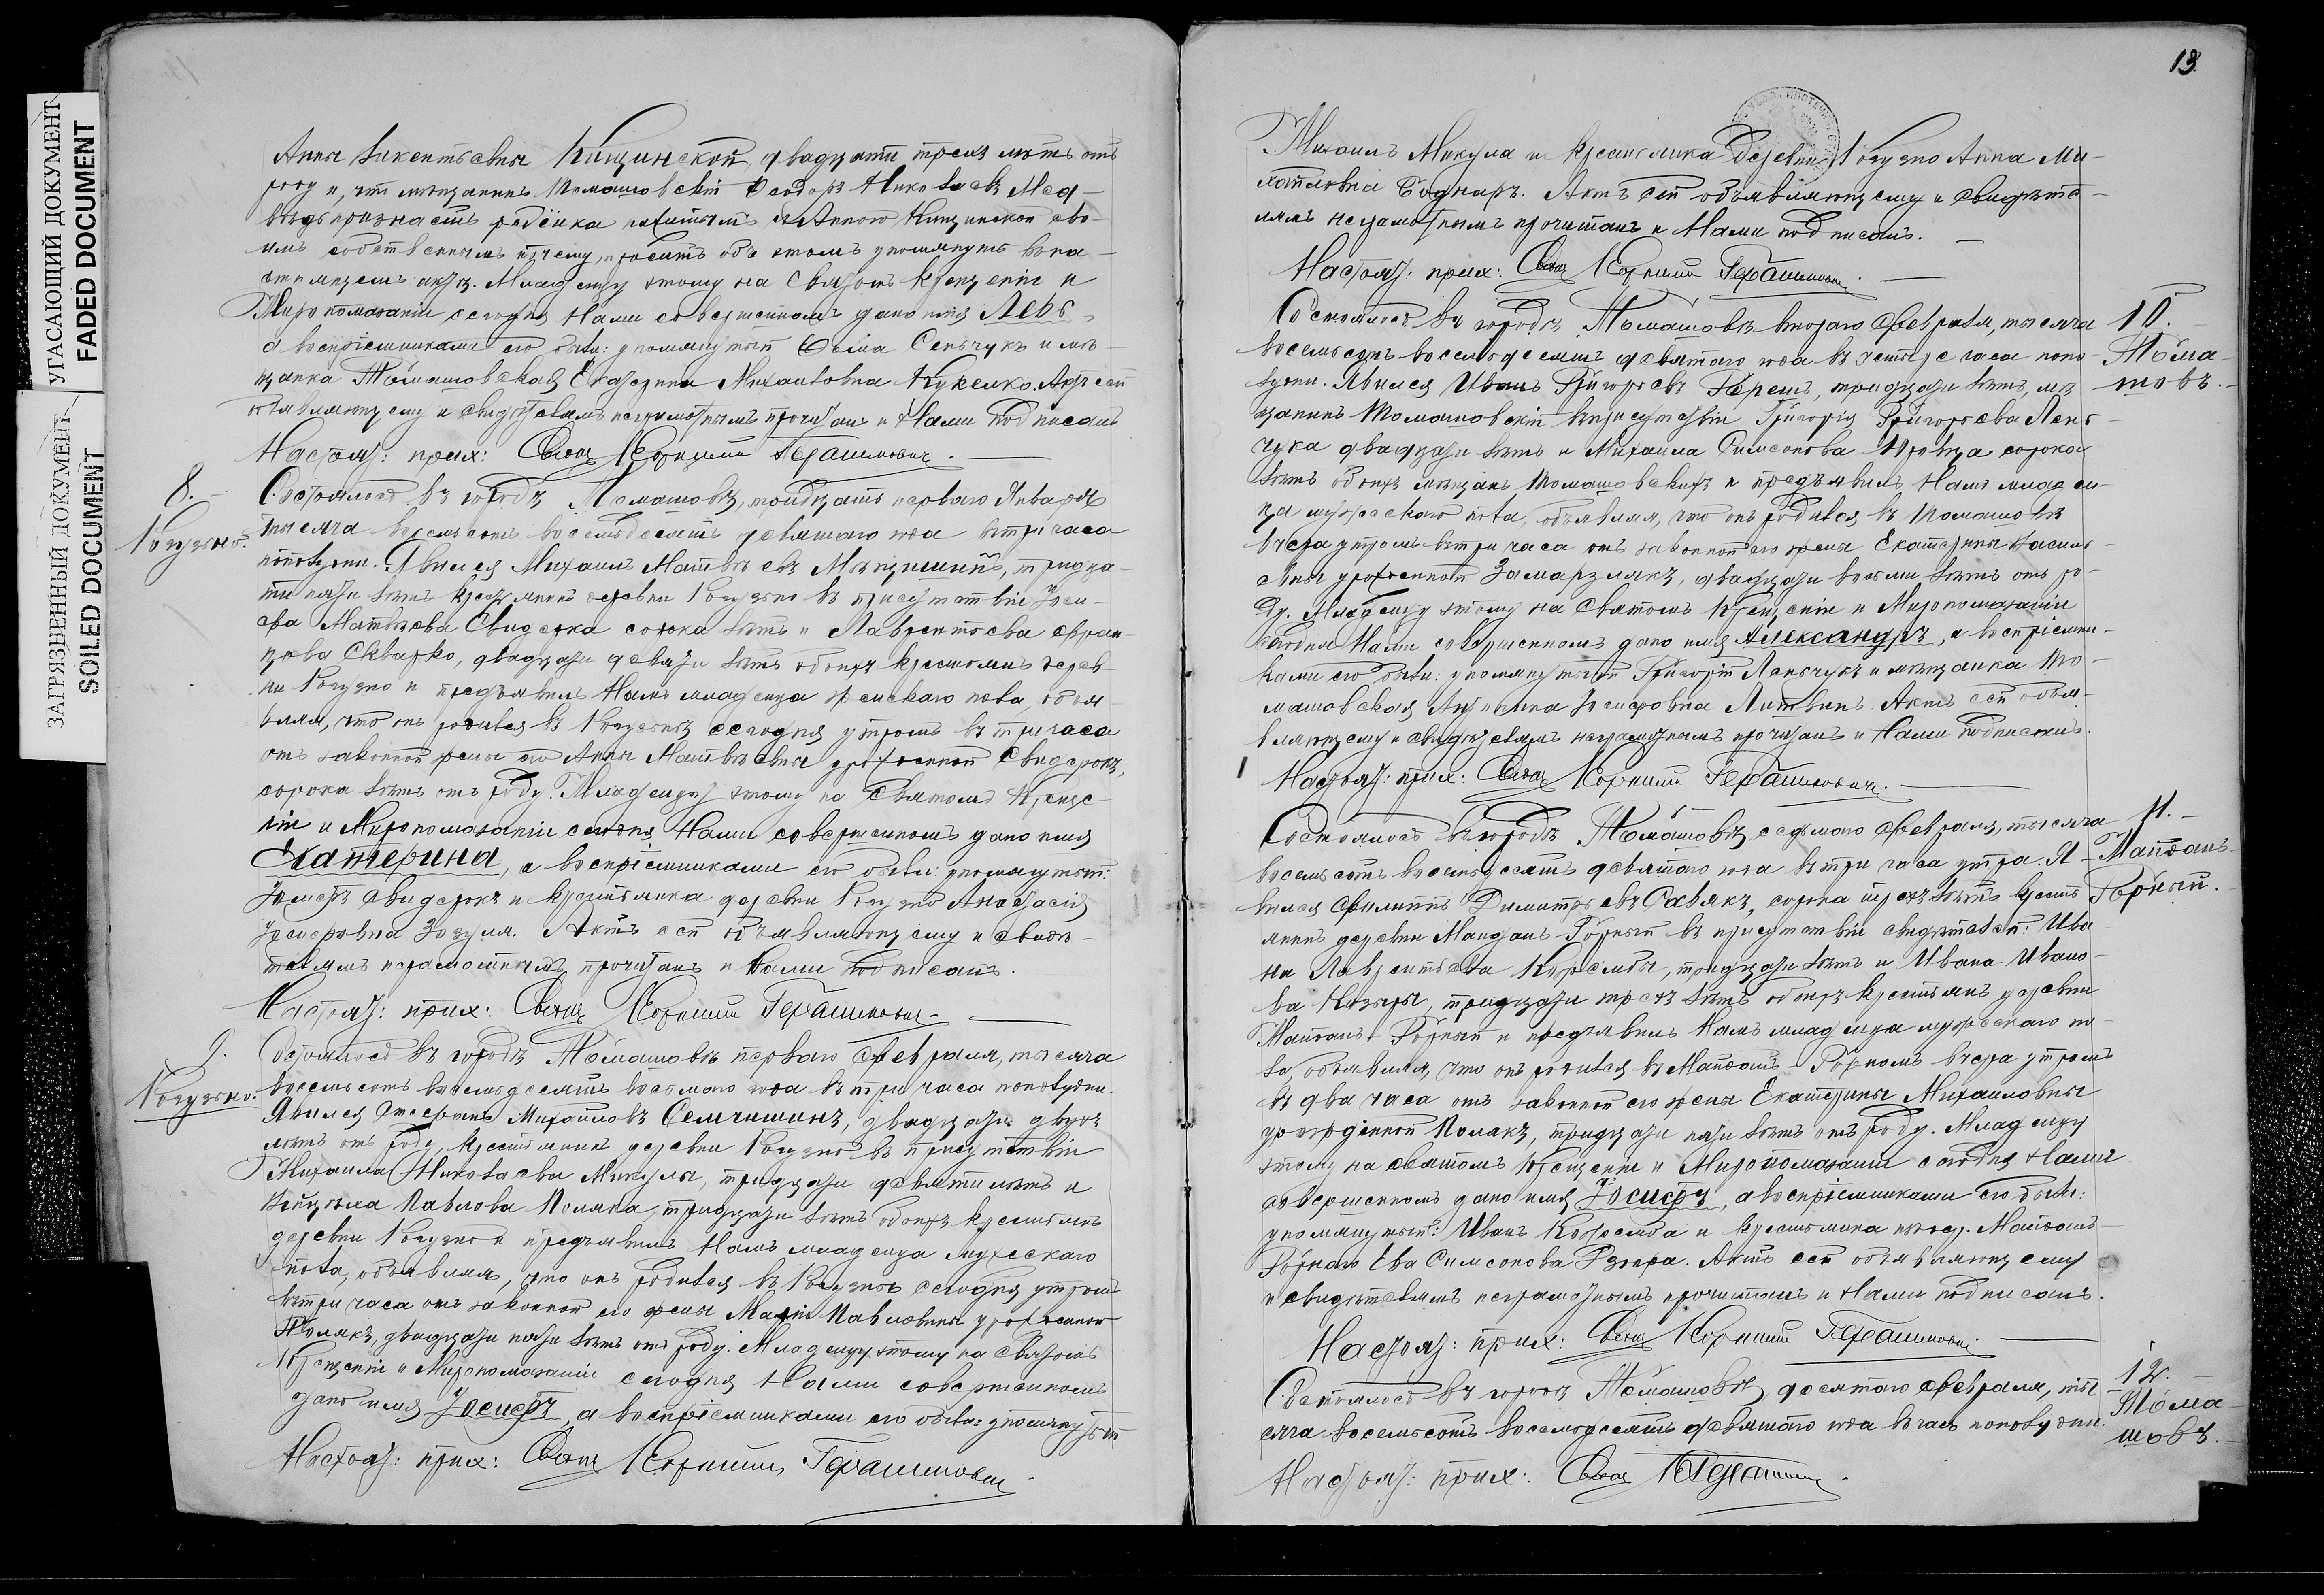 УГАСАЮЩИЙ ДОКУМЕНТ
FADED DOCUMENT
ЗАГРЯЗНЕННЫЙ ДОКУМЕНТ
SOILED DOCUMENT
Анны Викентьевны Кищинской, двадцати трехъ лѣтъ отъ
роду и, что мѣщанинъ Томашовскій Ѳеодоръ Николаевъ Мед-
вѣдь признаетъ ребёнка нажитымъ съ Анною Кищинской сво-
имъ собственнымъ почему, проситъ объ этомъ упомянуть въ на-
стоящемъ актѣ. Младенцу этому на Святомъ Крещеніи и
Мѵропомазаніи сегодня Нами совершенномъ дано имя Левъ,
а воспріемниками его были: упомянутый Сеньчукъ и мѣ-
щанка Томашовская Екатерина Михайловна Кукелко. Актъ сей
объявляющему и свидѣтелямъ неграмотнымъ прочитанъ и Нами подписанъ
Настоят: прих: Свящ Корнилій Герашимовичъ.
8.
Рогузно.
Состоялось въ городѣ Томашовѣ, тридцать перваго Января
тысяча восемьсотъ восемьдесятъ девятаго года въ три часа
пополудни. Явился Михаилъ Матвѣевъ Мѣнцишинъ, тридца-
ти пяти лѣтъ крестьянинъ деревни Рогузно въ присутствіи Іоси-
фа Матвѣева Свидерка сорока лѣтъ и Лаврентьева Фран-
цова Скварко, двадцати девяти лѣтъ обоихъ крестьянъ дерев-
ни Рогузно и предъявилъ Намъ младенца женскаго пола, объя-
вляя, что онъ родился въ Рогузнѣ сегодня утромъ въ три часа
отъ законной жены его Анны Матвѣевны урожденной Свидерокъ,
сорока лѣтъ отъ роду. Младенцу этому на Святомъ Креще-
ніи и Мѵропомазаніи сегодня Нами совершенномъ дано имя
Екатерина, а воспріемниками его были: упомянутый:
Іосифъ Свидерокъ и крестьянка деревни Рогузно Анастасія
Іосифовна Зозуля. Актъ сей объявляющему и свидѣ-
телямъ неграмотнымъ прочитанъ и Нами подписанъ.
Настоят: прих: Свящ Корнилій Герашимовичъ.
9.
Рогузно.
Состоялось въ городѣ Томашовѣ перваго Февраля, тысяча
восемьсотъ восемьдесятъ восьмого года въ три часа пополудни.
Явился Стефанъ Михайловъ Семчишинъ, двадцати двухъ
лѣтъ отъ роду, крестьянинъ деревни Рогузно въ присутствіи
Михаила Николаева Микулы, тридцати девяти лѣтъ и
Павлова Поляка, тридцати лѣтъ обоихъ крестьянъ
деревни Рогузно и предъявилъ Намъ младенца мужескаго
пола, объявляя, что онъ родился въ Рогузнѣ сегодня утромъ
въ три часа отъ законной его жены Маріи Павловны урожденной
Полякъ, двадцати пяти лѣтъ отъ роду. Младенцу этому на Святомъ
Крещеніи и Мѵропомазаніи сегодня Нами совершенномъ
дано имя Іосифъ, а воспріемниками его были: упомянутый
Настоят: прих: Свящ Корнилій Герашимовичъ.
13.
Михаилъ Микула и крестьянка деревни Рогузно Анна Ми-
хайловна Боднаръ. Актъ сей объявляющему и свидѣте-
лямъ неграмотнымъ прочитанъ и Нами подписанъ.
Настоят: прих: Свящ Корнилій Герашимовичъ.
10.
Тома-
шовъ.
Состоялось въ городѣ Томашовѣ втораго Февраля, тысяча
восемьсотъ восемьдесятъ девятаго года въ четыре часа попо-
лудни. Явился Иванъ Григорьевъ Герешъ, тридцати лѣтъ, мѣ-
щанинъ Томашовскій въ присутствіи Григорія Григорьева Лень-
чука двадцати лѣтъ и Михаила Симеонова Кравца сорока
лѣтъ обоихъ мѣщанъ Томашовскихъ и предъявилъ Намъ младен-
ца мужескаго пола, объявляя, что онъ родился въ Томашовѣ
вчера утромъ въ три часа отъ законной его жены Екатерины Василь-
евны урожденной Замарзлякъ, двадцати восьми лѣтъ отъ ро-
ду. Младенцу этому на Святомъ Крещеніи и Мѵропомазаніи
сегодня Нами совершенномъ дано имя Александръ, а воспріемни-
ками его были: упомянутый Григорій Леньчукъ и мѣщанка То-
машовская Іосифовна Литвинъ. Актъ сей объя-
вляющему и свидѣтелямъ неграмотнымъ прочитанъ и Нами подписанъ.
Настоят: прих: Свящ Корнилій Герашимовичъ.
11.
Майданъ-
Горный.
Состоялось въ городѣ Томашовѣ, седьмого Февраля, тысяча
восемьсотъ восемьдесятъ девятаго года въ три часа утра. Я-
вился Филиппъ Димитріевъ Савякъ, сорока трехъ лѣтъ кресть-
янинъ деревни Майданъ-Горный въ присутствіи свидѣтелей: Ива-
на Лаврентьева Коржемба, тридцати лѣтъ и Ивана Ивано-
ва Козыры, тридцати трехъ лѣтъ обоихъ крестьянъ деревни
Майданъ-Горный и предъявилъ Намъ младенца мужескаго по-
ла, объявляя, что онъ родился въ Майданѣ-Горномъ вчера утромъ
въ два часа отъ законной его жены Екатерины Михайловны
урожденной Полакъ, тридцати пяти лѣтъ отъ роду. Младенцу
этому на Святомъ Крещеніи и Мѵропомазаніи сегодня Нами
совершенномъ дано имя Іосифъ, а воспріемниками его были:
упомянутый: Иванъ Коржемба и крестьянка Майдана-
Горнаго Ева Симеонова. Актъ сей объявляющему
и свидѣтелямъ неграмотнымъ прочитанъ и Нами подписанъ.
Настоят: прих: Свящ Корнилій Герашимовичъ.
12.
Тома-
шовъ.
Состоялось въ городѣ Томашовѣ, десятаго Февраля, ты-
сяча восемьсотъ восемьдесятъ девятаго года въ часъ пополудни.
Настоят: прих: Свящ КГерашимовичъ.